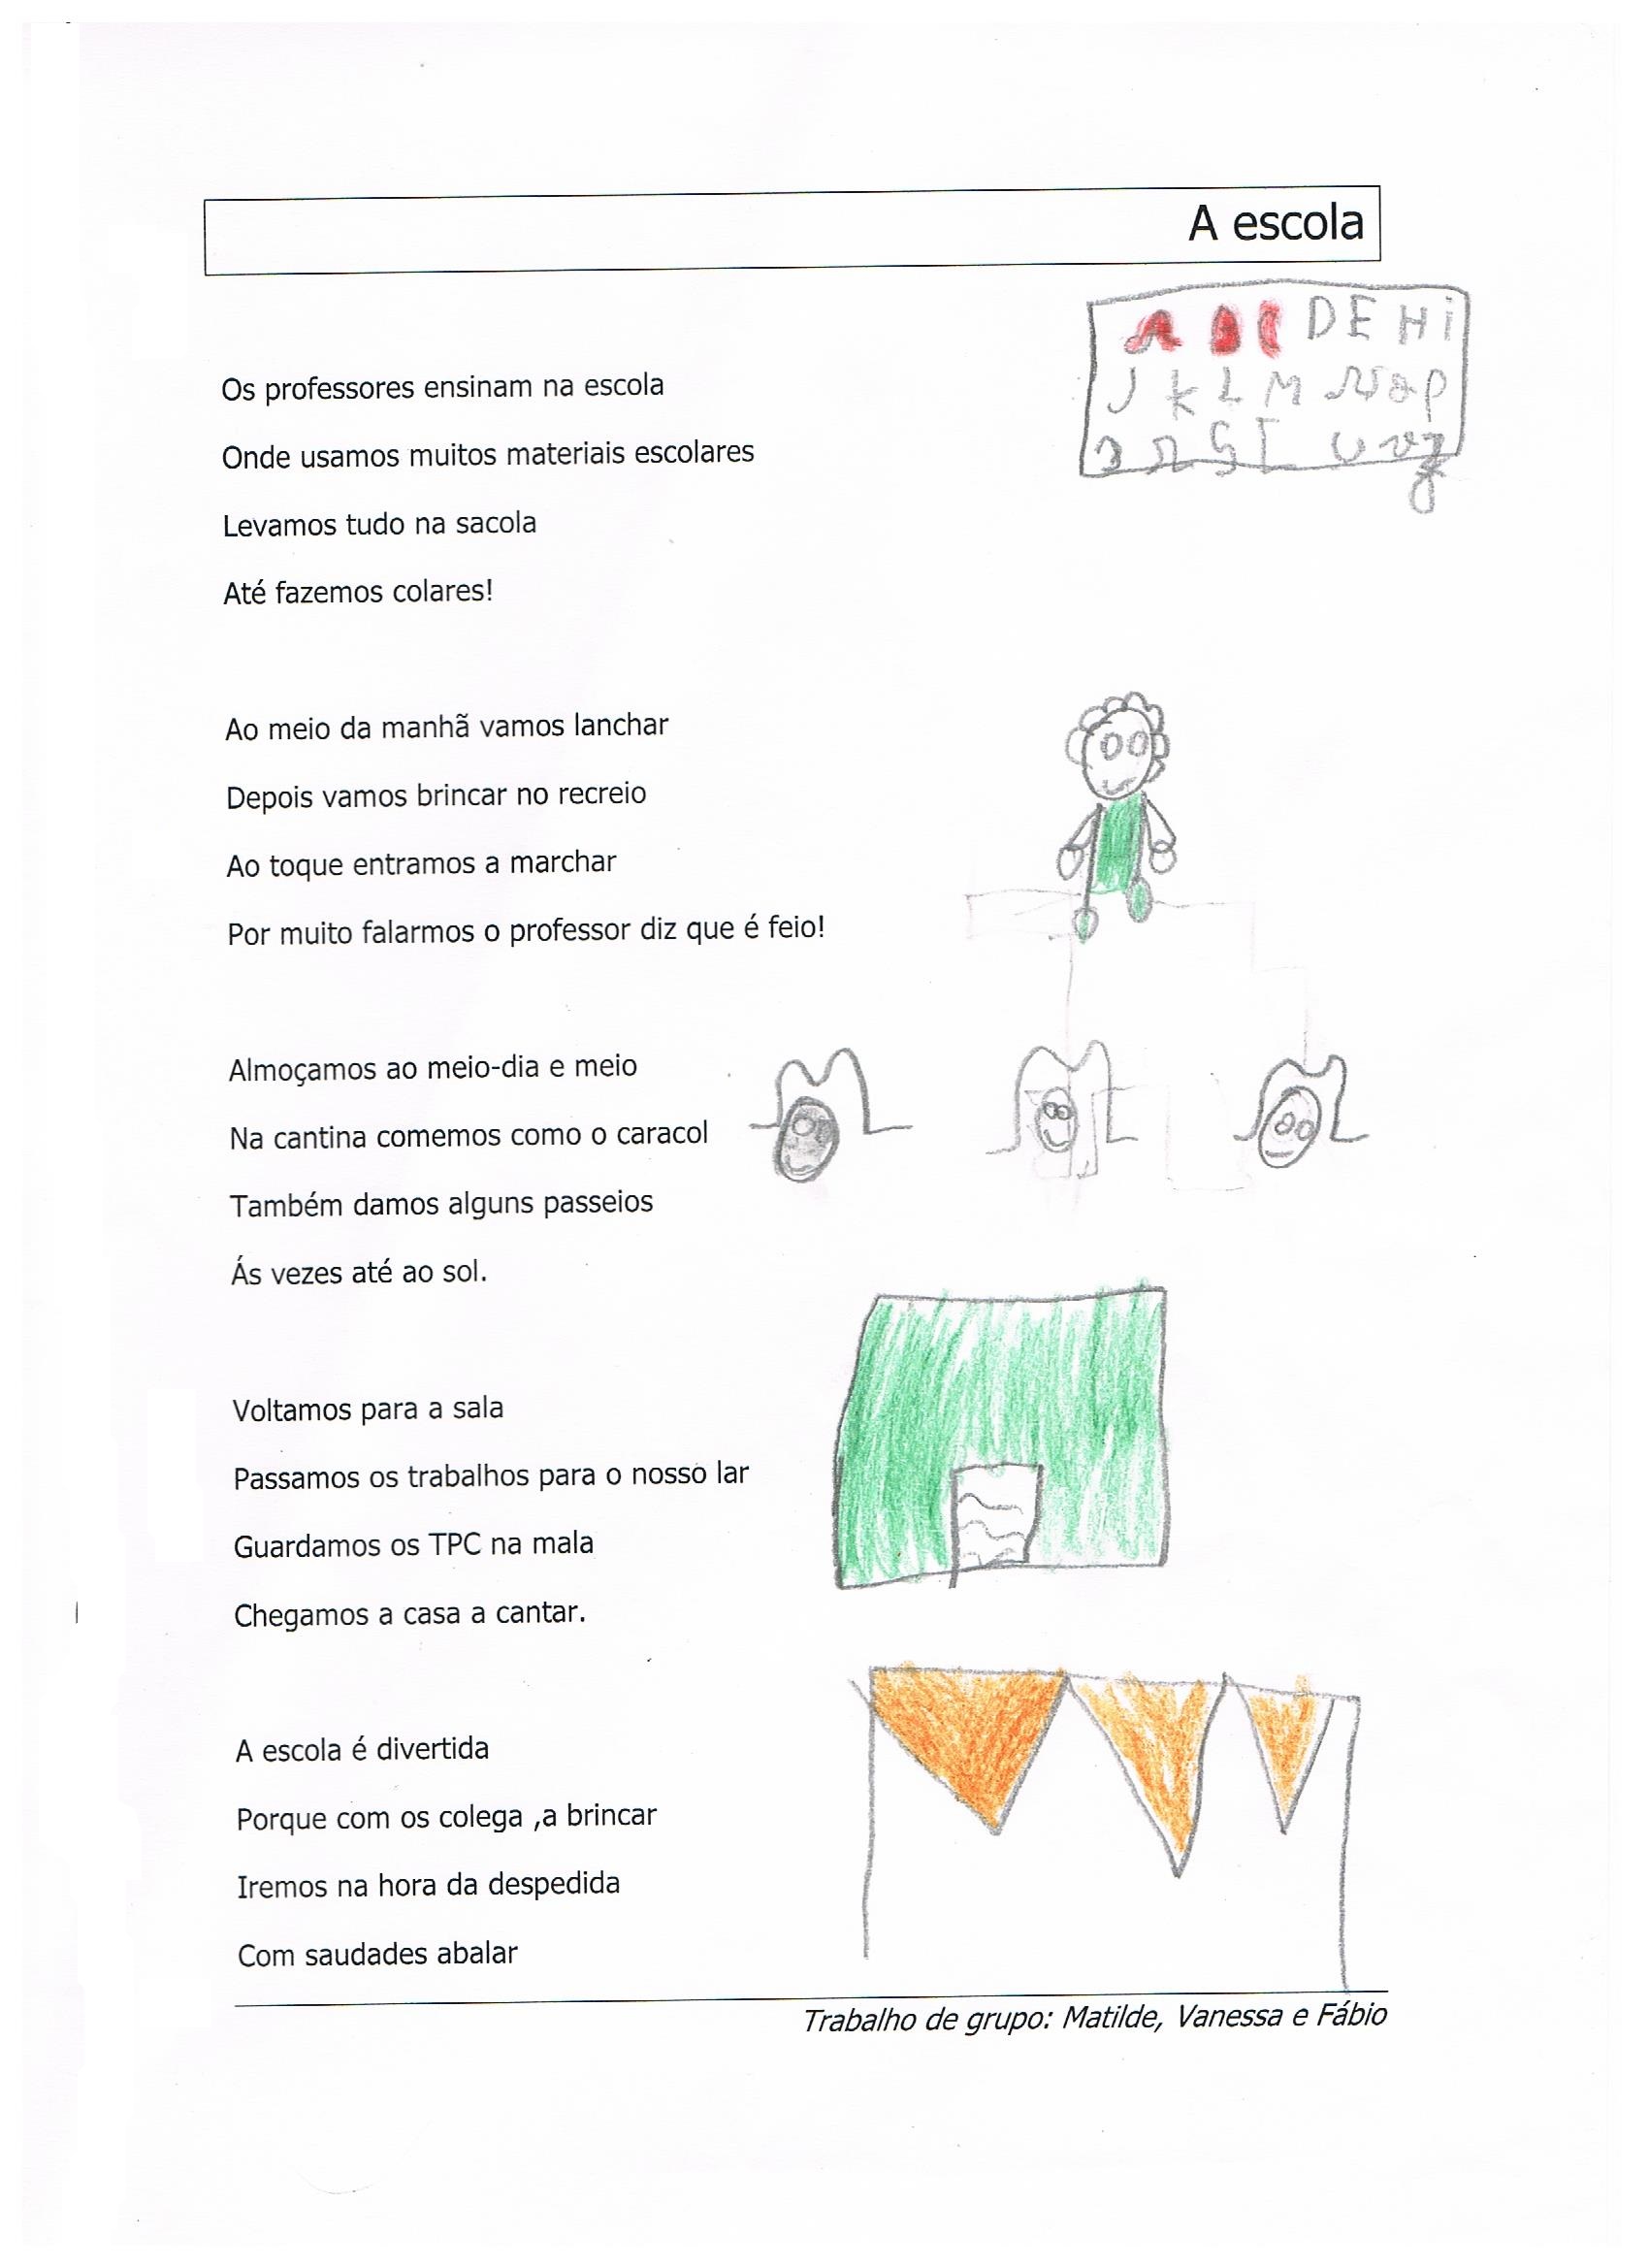 A escola
A B C D E H i
J K L M N O P
Q R S T U V X
Z
Os professores ensinam na escola
Onde usamos muitos materiais escolares
Levamos tudo na sacola
Até fazemos colares!
Ao meio da manhã vamos lanchar
Depois vamos brincar no recreio
Ao toque entramos a marchar
Por muito falarmos o professor diz que é feio!
Almoçamos ao meio-dia e meio
Na cantina comemos como o caracol
Também damos alguns passeios
Ás vezes até ao sol.
Voltamos para a sala
Passamos os trabalhos para o nosso lar
Guardamos os TPC na mala
Chegamos a casa a cantar.
A escola é divertida
Porque com os colega ,a brincar
Iremos na hora da despedida
Com saudades abalar
Trabalho de grupo: Matilde, Vanessa e Fábio